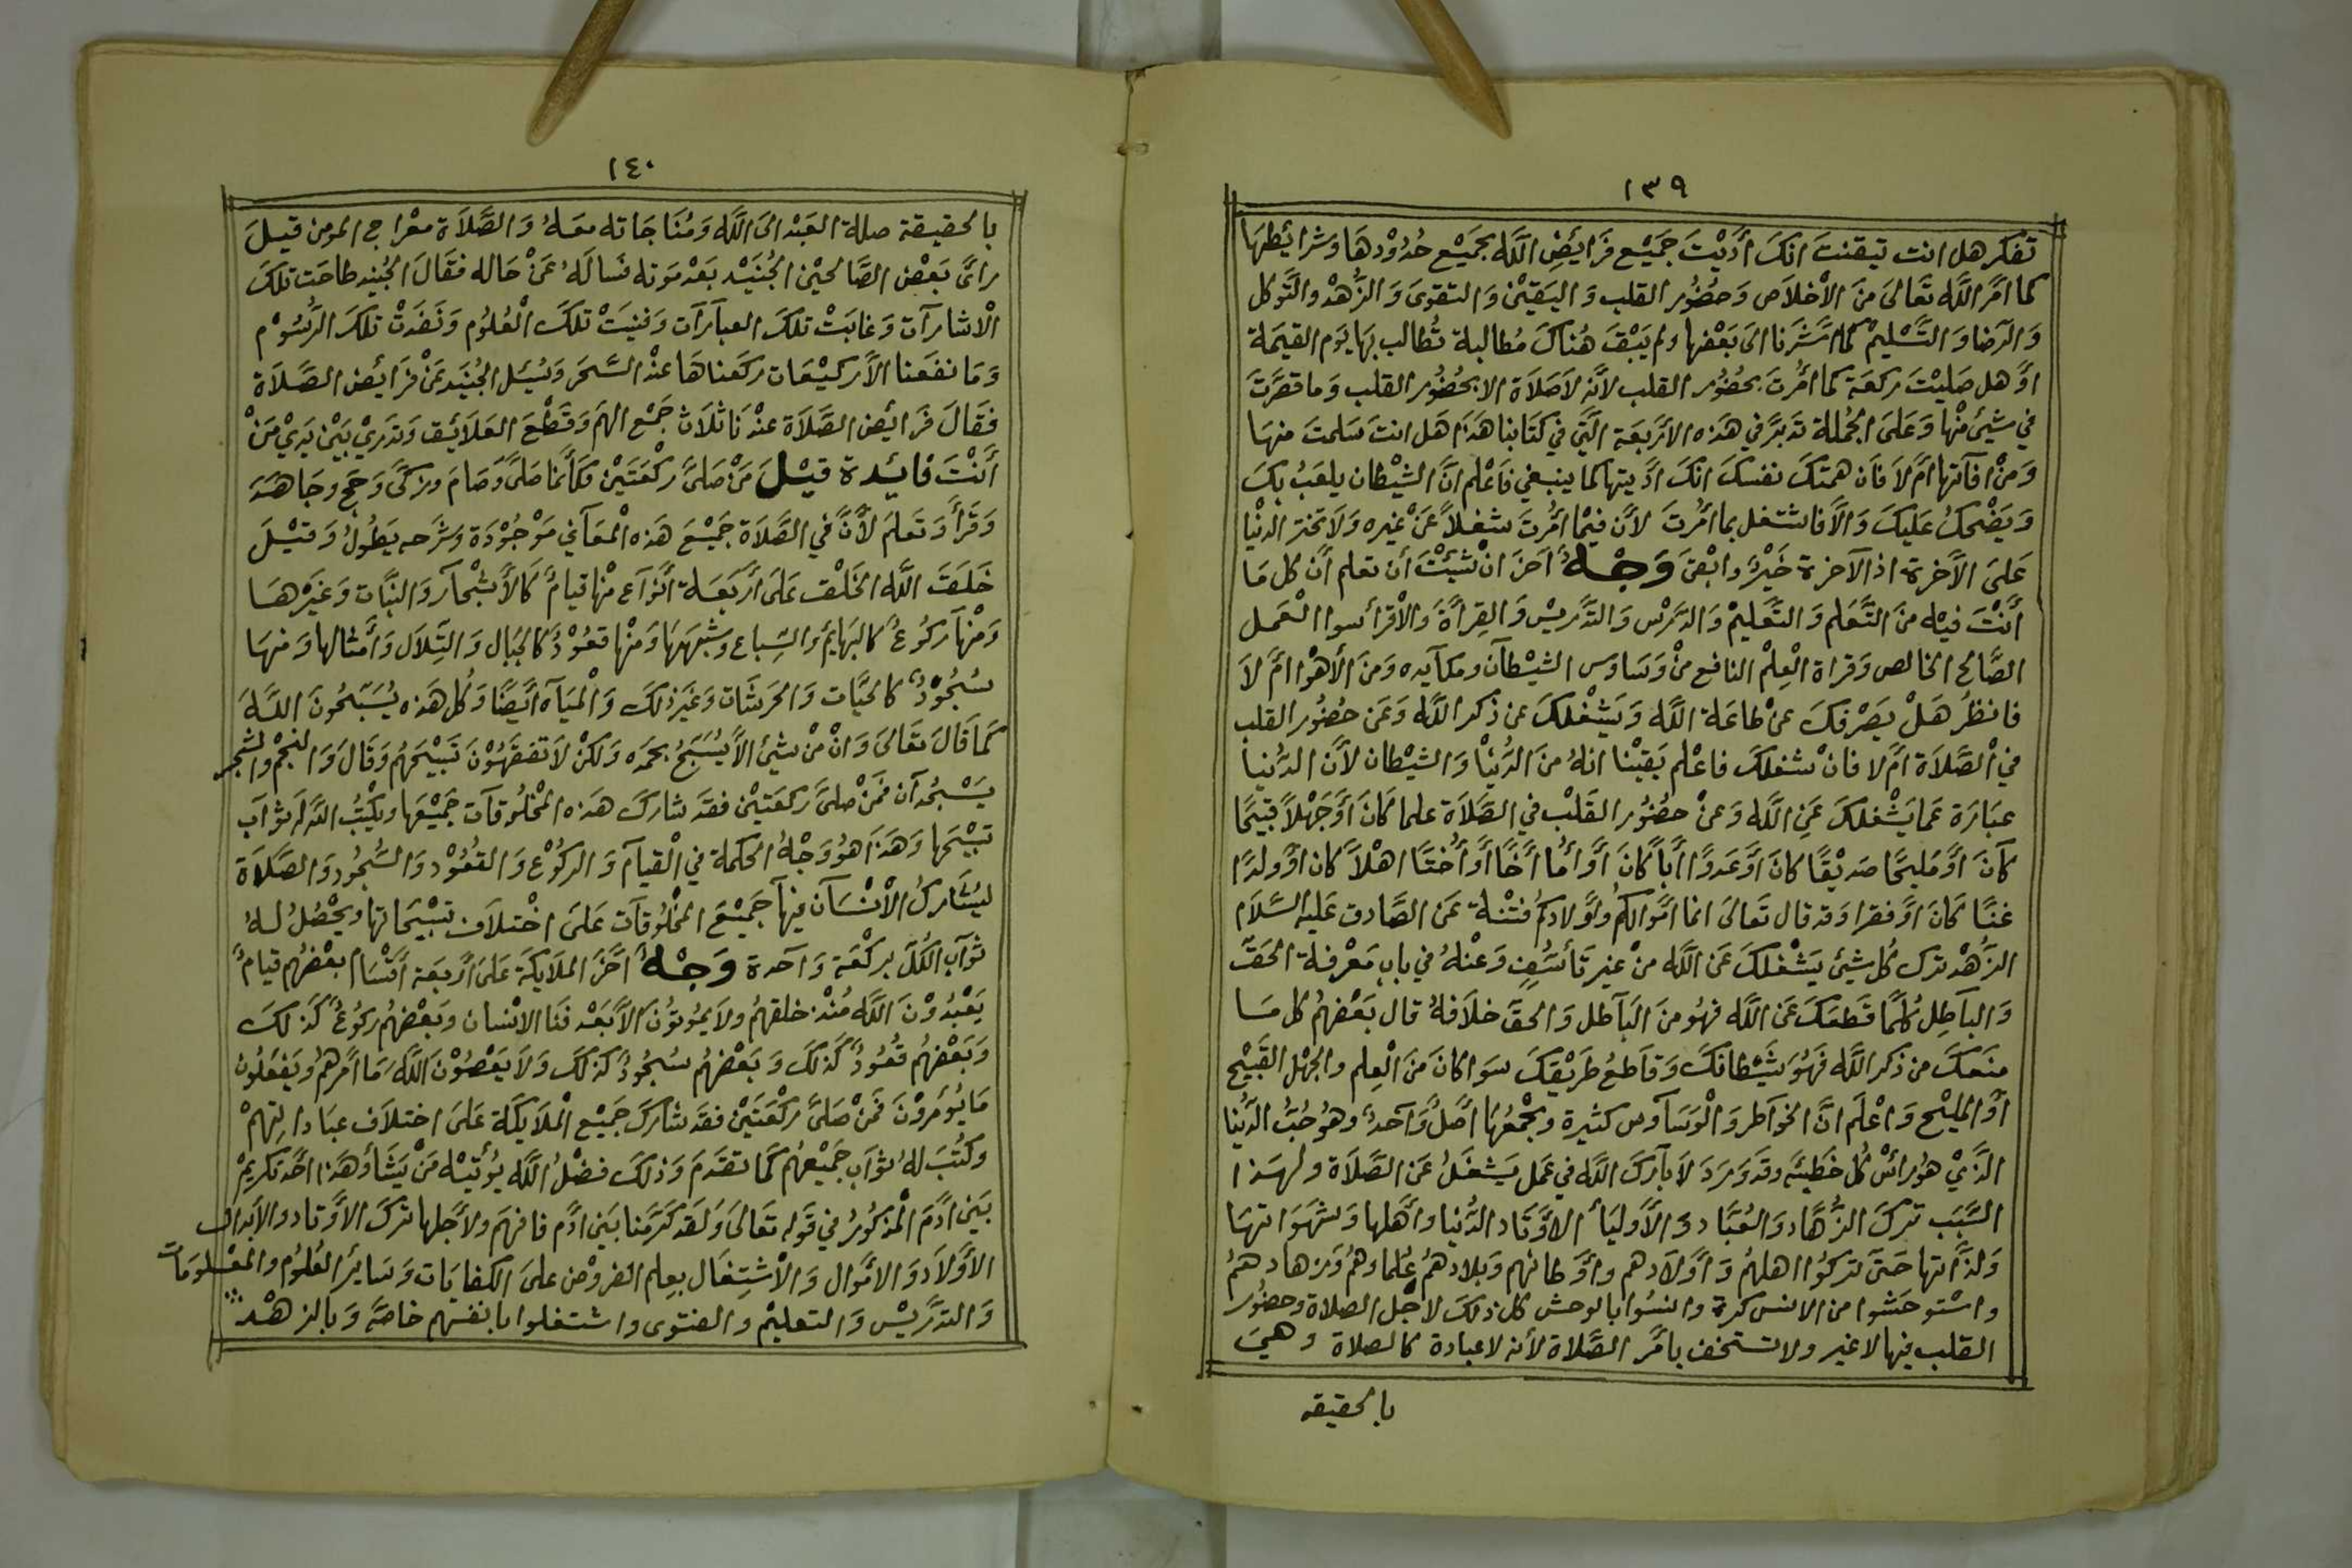 ١٣٩
تفكر هل انت تيقنت انك أَدَّيْتَ جَمِيْع فَرَايضِ اللّه بجَمِيْع حُدُوْدهَا وشرايطها
كما امَرَ اللّه تَعَالىَ مِنَ الاْخلاَص وَحضُوُر القلب وَاليَقيْن وَالتقوىَ وَالزُّهْد والتَّوكل
وَالرَضا وَالتَّسْليمْ كما اشَرنا الىَ بَعْضها ولم يَبْقَ هُنَاكَ مُطالبة تُطالب بهَا يَوم القيمَة
اوَ هل صَليْتَ ركعَة كما امُرتَ بحُضُور القلب لأنه لاَصَلاَة الا بحُضُور القلب وَما قصَرَّتَ
في شيئ مْنها وَعَلىَ الجُملة تدبرَّ في هَذه الاَرْبَعَة التَّي في كتَابنا هَذَا هَل انتَ سَلمتَ منهَا
وَمنْ افاتها امَّ لاَ فان همتكَ نفسكَ انكَ ادَّيتها كما ينبغي فاَعْلم انَّ الشيْطان يلعَبُ بكَ
وَيَضْحكُ عَليكَ وَالاَّ فاشتغل بما امُرتَ لأنَّ فيْما امُرتَ شغلاً عَنْ غيره وَلاَ تختر الدنْيا
عَلىَ الاَخرة اذ الآخرة خَيْرٌ وابْقىَ وَجْهٌ اخرَ انْ شئِتْ أن تعلم أنَّ كل مَا
أنْتَ فيْه منَ التَّعَلم وَالتَّعَليمْ وَالدَّرْس وَالتَّدْريسْ وَالقِرأةَ وَالأقرأ سوا العْمل
الصَّالح الخالص وَقراة الْعِلمْ النافع منْ وَسَاوس الشيْطآن ومكآيده وَمنَ الأهْوا امَّ لاَ
فانظُر هَلْ يَصَرْفكَ عنْ طاعَة اللّه وَيَشْغلكَ عن ذكر اللّه وَعَن حضُور القلب
في الْصَّلاَة امَّ لا فانْ شغلكَ فاعْلم يَقيْنا انهُ منَ الدُّنيْاَ وَالشيْطان لأنَّ الدُّنيا
عبَارَة عَما يَشْغلكَ عَنِ اللّه وَعنْ حضُور القَلبْ في الصَّلاَة علما كَانَ أوَجَهْلاً قبيَحًا
كآنَ اوَ مَليحًا صَديْقًا كانَ أوَعَدوَّا أبَاً كانَ اوَ أمُا أخًا اوَ أُختًا اهْلاً كان اوَولدًا
غنًا كَانَ اوَفقرا وَقد قال تَعالىَ انما امْوَالكم وأوَلادكم فتْنة عَن الصَّادق عَليْه السَّلاَم
الزُهْد ترك كُل شيئ يَشْغلكَ عَن اللّه منْ غير تأسُّفٍ وَعْنهُ في باب مَعْرفة الحَقّ
وَالبآطِل كُلمَّا قَطعَكَ عَن اللّه فهُو منَ البَآطل وَالحقَ خلاَفهُ قال بَعْضهمُ كل مَا
منَعكَ من ذكر اللّه فَهُوَ شَيْطانكَ وَقاطعُ طَريْقكَ سَوا كانَ مَنَ الْعِلم والجهْل القَبيْح
اوَ المليْح وَاعْلمَ انَّ الخوَاطر وَالوَسَآوس كثيرة وَيجْمعُهَا اصَلٌ وَاحَدٌ وهوُ حُبُّ الدّنيا
الذَّيْ هوُ رأسْ كُل خطَيْئة وقدَ وَرَدَ لاَ بآركَ اللّه في عَمل يَشغَلُ عَن الصَّلاَة ولهَذا
السَّبَب تركَ الزُّهَّاد وَالعُبَّاد وَالأوليَأ الأوَتَاد الدُّنيا وأهَلها وَشهَوَاتهَا
وَلذَّاتها حَتىَ تركوُا اهلهمُ وَأوَلادهم واوَطانهم وَبلادهمُ عُلماؤهمُ وَزهادهمُ
واسْتوحَشوا من الانس كرة وانسُوا بالوحش كل ذلكَ لاجْل الصلاة وحضُور
القلب فيها لاغير ولا تستخف بأمَر الصَّلاة لأنه لاعبادة كالصلاة وهيَ
بالحقيقه
١٤٠
بالحقيقة صلة العَبْد الىَ اللَّه وَمُنَاجَاته معَهُ وَالصَّلاَة معْراج المومن قيلَ
رأىَ بَعْض الصَّالحيْن الجُنَيْد بَعْد مَوته فسَالَهُ عَنْ حَاله فقَالَ الجُنيد طاحَت تلكَ
الاْشارآت وَغابَتْ تلكَ العبآرَآت وَفنيَتْ تلكَ الْعُلوُم وَنَفَدتْ تلكَ الرُّسُوْم
وَمَا نفَعَنا الاَّ ركيْعَات ركَعناهَا عنْد السَّحَر وَسُئِل الجُنَيَد عَنْ فرَائض الصَّلاَة
فقَالَ فَرَائِض الصَّلاَة عنْدنَا ثلاَث جَمْع الهَم وَقَطْع العَلاَئق وَتدَريْ بَيْنَ يَديْ مَنْ
أَنْتَ فائدة قيْلَ مَنْ صَلىَّ ركْعَتَيْن فكأنمَا صَلىَّ وَصَامَ وزكىَّ وَحَج وجَاهَدَ
وَقرَأَ وَتعَلمَ لأنَّ في الصَّلاَة جَميْعَ هَذه الْمعَآني مَوْجُوْدَة وشَرَحه يَطوُلُ وَقيْلَ
خَلقَ اللّه الخَلْق عَلىَ أرَبَعَة أنْوَآع منْها قيامٌ كَالأشْجآر وَالنبَّات وَغيَرْهَا
وَمنْهَا ركُوعٌ كالبَهايمْ وَالسِباع وشبْههَا وَمنْها قعُوْدٌ كَالجبَال وَالتِّلاَل وَأمثالها وَمنهَا
سُجُوْدٌ كالحيَّات وَالحَرشَات وَغيَر ذلكَ وَالْميَآه أيَضًا وَكُل هَذه يُسَبّحُونَ اللّهَ
كَمَا قالَ تعَالىَ وَانْ مْن شيئ الاَّ يُسَبَحُ بحَمَده وَلكنْ لاَ تفقَهُوْنَ تَسْبيْحَهُم وَقَالَ وَالنجْم والشجر
يَسْجُدآن فمَنْ صَلىَّ ركعَتيْن فقدَ شاركَ هَذه المْخلُوقآت جَميْعَها وَيكْتبُ اللّه لَهُ ثوَآب
تسْبيْحَها وَهَذاَ هوُ وَجْهُ الحكمة في الْقيآم وَالركُوْع وَالقعُوْد وَالسُّجُود وَالصَّلاَة
ليُشَاركَ الْأنْسَآن فيْهآ جَميْعَ المْخلُوقآت عَلىَ اخْتلاَف تسْبيْحَاتها وَيحْصُلُ لهُ
ثوَآب الكُلّ بركْعَة وَآحدة وَجْهٌ اخَرَ المَلاَيكَة عَلىَ أربَعَة أقْسَام بعْضُهُم قيامٌ
يَعْبُدُوْنَ اللَّه مُنْذ خلقهُم وَلاَ يمُوتوُنَ الاَّ بَعْد فنَا الانْسان وَبعْضهُم ركُوعٌ كَذلكَ
وَبَعْضهُم قُعُودٌ كَذلكَ وَبَعْضهُم سُجُودٌ كَذلكَ وَلاَ يَعْصُوْنَ اللّه مَا أمَرهمُ وَيفعَلوُنَ
مَا يُؤمَروْنَ فمَنْ صَلىَّ ركْعَتيَنْ فقدَ شاركَ جَميْع الْملاَيكَة عَلىَ اختلاَف عبَاداتِهمْ
وكُتبَ لهُ ثوَآب جَميْعهُم كَمَا تقدَمَ وَذلكَ فضْلُ اللَّه يُؤْتيْه مَنْ يَشَاءُ وَهَذا احَد تكريمْ
بَنيْ ادَمَ الْمذكُورُ في قوَله تعَالىَ وَلقدَ كرَّمنا بَني ادَّم فافهَم ولاَجلها تركَ الاوَتاد والأبدال
الأوَلاَد وَالاموَال وَالأشْتِغَال بعِلم الفروْض علىَ الكفايَات وَسَائر العُلوُم والمعْلومَات
وَالتدَّريْس وَالتعليمْ والفتوى واشتغلوا بانفسهم خاصَّة وَبالزهْد